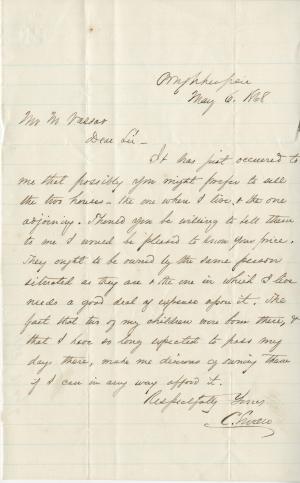 Poughkeepsie
May 6. 1868
Mr M Vassar
Dear Sir -
It has just occurred to
me that possibly you might prefer to sell
the two houses - the one where I live, & the one
adjoining. Should you be willing to sell them
to me I would be pleased to know your price.
They ought to be owned by the same person
situated as they are & the one in which I live
needs a good deal of expense upon it. The
fact that two of my children were born there, &
that I have so long expected to pass my
days there, make me desirous of owning them
if I can in any way afford it.
Respectfully Yours
C.